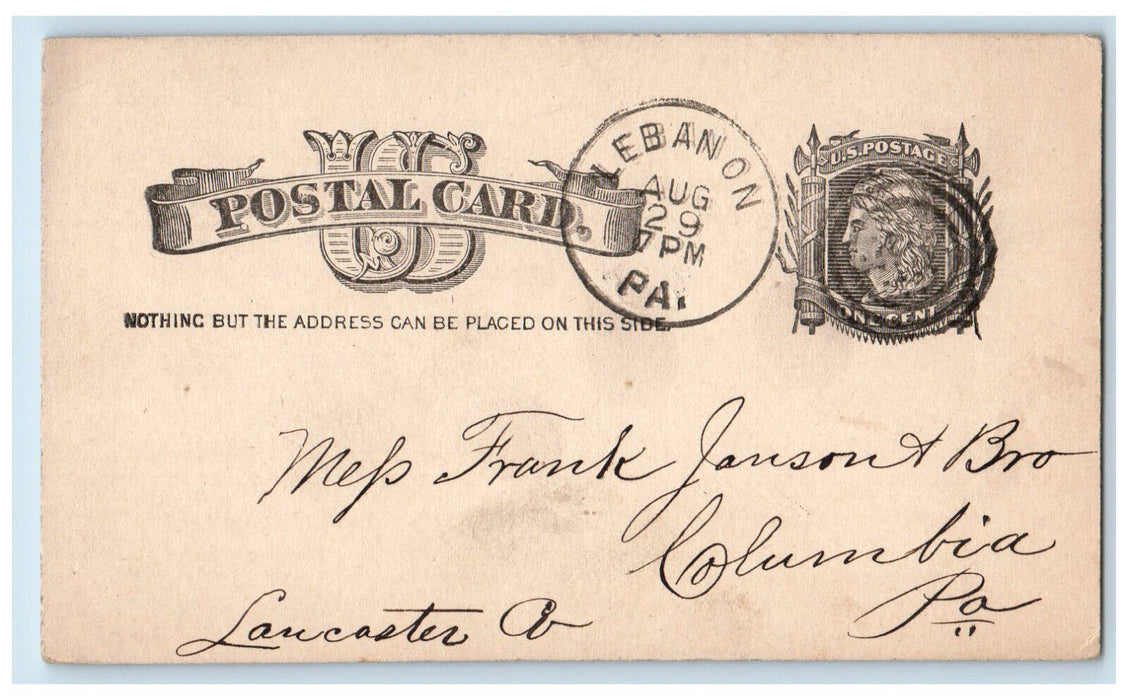 US
POSTAL CARD.
NOTHING BUT THE ADDRESS CAN BE PLACED ON THIS SIDE.
LEBANON
AUG
29
7 PM
PA.
U.S. POSTAGE
ONE CENT
Mess Frank Janson & Bro
Columbia
Pa
Lancaster Co